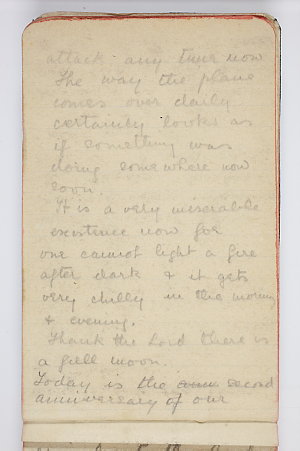 attack any time now
The way the plane
comes over daily
certainly looks as
if something was
doing somewhere now
soon.
It is a very miserable
existence now for
one cannot light a fire
after dark & it gets
very chilly in the morning
& evening.
Thank the Lord there is
a full moon.
Today is the second
anniversary of our